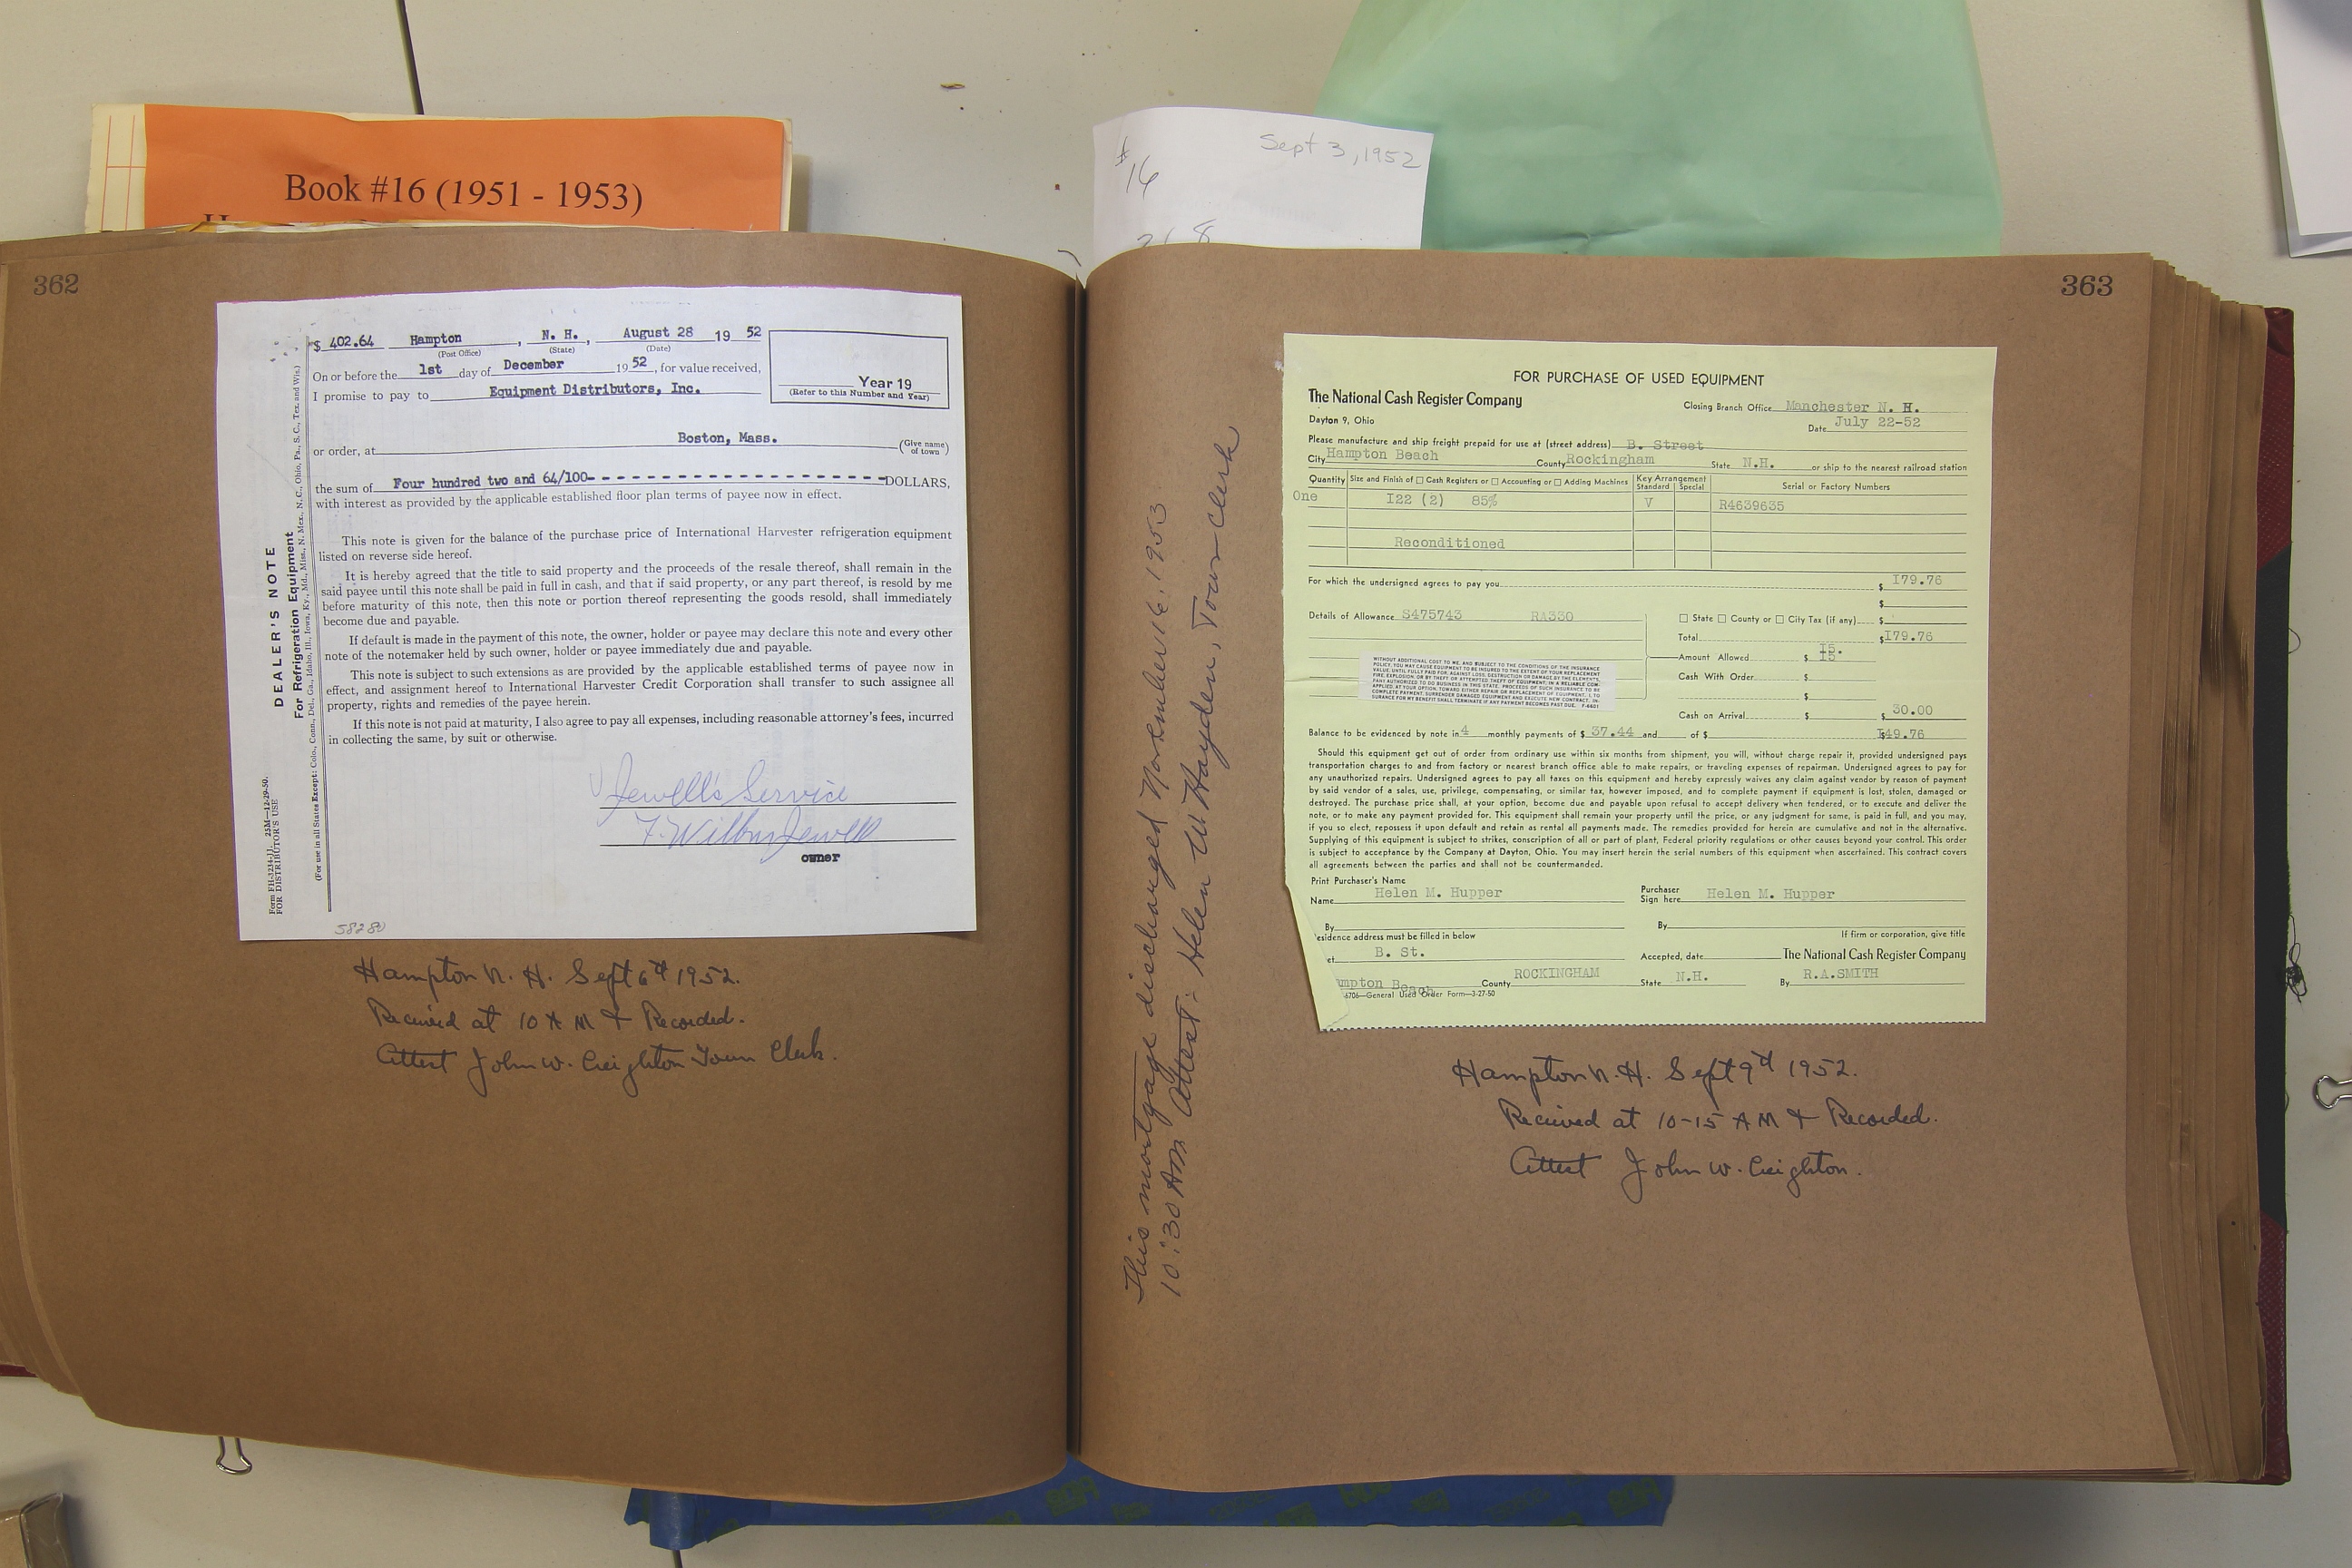 Book #16 (1951 - 1953)
Sept 3, 1952
16
362
$ 402.64 Hampton , N. H. , August 28 19 52
(Post Office) (State) (Date)
On or before the 1st day of December 19 52 , for value received,
I promise to pay to Equipment Distributors, Inc.
Year 19
(Refer to this Number and Year)
or order, at Boston, Mass. (Give name of town)
the sum of Four hundred two and 64/100- - - - - - - - - - - - - - - - - - DOLLARS,
with interest as provided by the applicable established floor plan terms of payee now in effect.
This note is given for the balance of the purchase price of International Harvester refrigeration equipment
listed on reverse side hereof.
It is hereby agreed that the title to said property and the proceeds of the resale thereof, shall remain in the
said payee until this note shall be paid in full in cash, and that if said property, or any part thereof, is resold by me
before maturity of this note, then this note or portion thereof representing the goods resold, shall immediately
become due and payable.
If default is made in the payment of this note, the owner, holder or payee may declare this note and every other
note of the notemaker held by such owner, holder or payee immediately due and payable.
This note is subject to such extensions as are provided by the applicable established terms of payee now in
effect, and assignment hereof to International Harvester Credit Corporation shall transfer to such assignee all
property, rights and remedies of the payee herein.
If this note is not paid at maturity, I also agree to pay all expenses, including reasonable attorney's fees, incurred
in collecting the same, by suit or otherwise.
Jewell's Service
F. Wilbur Jewell
owner
DEALER'S NOTE
For Refrigeration Equipment
(For use in all States Except: Colo., Conn., Del., Ga., Idaho, Ill., Iowa, Ky., Md., Miss., N. Mex., N. C., Ohio, Pa., S. C., Tex. and Wis.)
Form FH-3234-11. 25M—12-29-50.
FOR DISTRIBUTOR'S USE
58280
Hampton N. H. Sept 6th 1952.
Received at 10 A M & Recorded.
Attest John W. Creighton Town Clerk.
363
This mortgage discharged November 16, 1953
10:30 AM Attest: Helen W. Hayden, Town Clerk
FOR PURCHASE OF USED EQUIPMENT
The National Cash Register Company
Closing Branch Office Manchester N. H.
Dayton 9, Ohio
Date July 22-52
Please manufacture and ship freight prepaid for use at (street address) B. Street
City Hampton Beach County Rockingham State N.H. or ship to the nearest railroad station
Quantity Size and Finish of ☐ Cash Registers or ☐ Accounting or ☐ Adding Machines Key Arrangement Standard Special Serial or Factory Numbers
One I22 (2) 85% V R4639635
Reconditioned
For which the undersigned agrees to pay you $ I79.76
$
Details of Allowance S475743 RA330
☐ State ☐ County or ☐ City Tax (if any) $
Total $ I79.76
Amount Allowed $ I5.
WITHOUT ADDITIONAL COST TO ME, AND SUBJECT TO THE CONDITIONS OF THE INSURANCE
POLICY, YOU MAY CAUSE EQUIPMENT TO BE INSURED TO THE EXTENT OF YOUR REPLACEMENT
VALUE, UNTIL FULLY PAID FOR, AGAINST LOSS, DESTRUCTION OR DAMAGE BY THE ELEMENTS,
FIRE, EXPLOSION, OR BY THEFT OR ATTEMPTED THEFT OF EQUIPMENT, IN A RELIABLE COM-
PANY AUTHORIZED TO DO BUSINESS IN THIS STATE. PROCEEDS OF SUCH INSURANCE TO BE
APPLIED, AT YOUR OPTION, TOWARD EITHER REPAIR OR REPLACEMENT OF EQUIPMENT, I, TO
COMPLETE PAYMENT, SURRENDER DAMAGED EQUIPMENT AND EXECUTE NEW CONTRACT. IN-
SURANCE FOR MY BENEFIT SHALL TERMINATE IF ANY PAYMENT BECOMES PAST DUE. F-6601
Cash With Order $
$
Cash on Arrival $ $ 30.00
Balance to be evidenced by note in 4 monthly payments of $ 37.44 and of $ $ I49.76
Should this equipment get out of order from ordinary use within six months from shipment, you will, without charge repair it, provided undersigned pays
transportation charges to and from factory or nearest branch office able to make repairs, or traveling expenses of repairman. Undersigned agrees to pay for
any unauthorized repairs. Undersigned agrees to pay all taxes on this equipment and hereby expressly waives any claim against vendor by reason of payment
by said vendor of a sales, use, privilege, compensating, or similar tax, however imposed, and to complete payment if equipment is lost, stolen, damaged or
destroyed. The purchase price shall, at your option, become due and payable upon refusal to accept delivery when tendered, or to execute and deliver the
note, or to make any payment provided for. This equipment shall remain your property until the price, or any judgment for same, is paid in full, and you may,
if you so elect, repossess it upon default and retain as rental all payments made. The remedies provided for herein are cumulative and not in the alternative.
Supplying of this equipment is subject to strikes, conscription of all or part of plant, Federal priority regulations or other causes beyond your control. This order
is subject to acceptance by the Company at Dayton, Ohio. You may insert herein the serial numbers of this equipment when ascertained. This contract covers
all agreements between the parties and shall not be countermanded.
Print Purchaser's Name
Name Helen M. Hupper
Purchaser Sign here Helen M. Hupper
By By
esidence address must be filled in below If firm or corporation, give title
et B. St. Accepted, date The National Cash Register Company
mpton Beach County ROCKINGHAM State N.H. By R.A.SMITH
6706—General Used Order Form—3-27-50
Hampton N. H. Sept 9th 1952.
Received at 10-15 A M & Recorded.
Attest John W. Creighton.